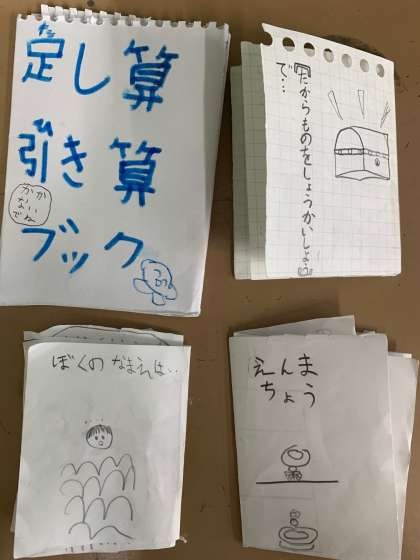 足し算
引き算
ブック
『たからものをしょうかいしよう』
で…
ぼくの なまえは‥
えんま
ちょう